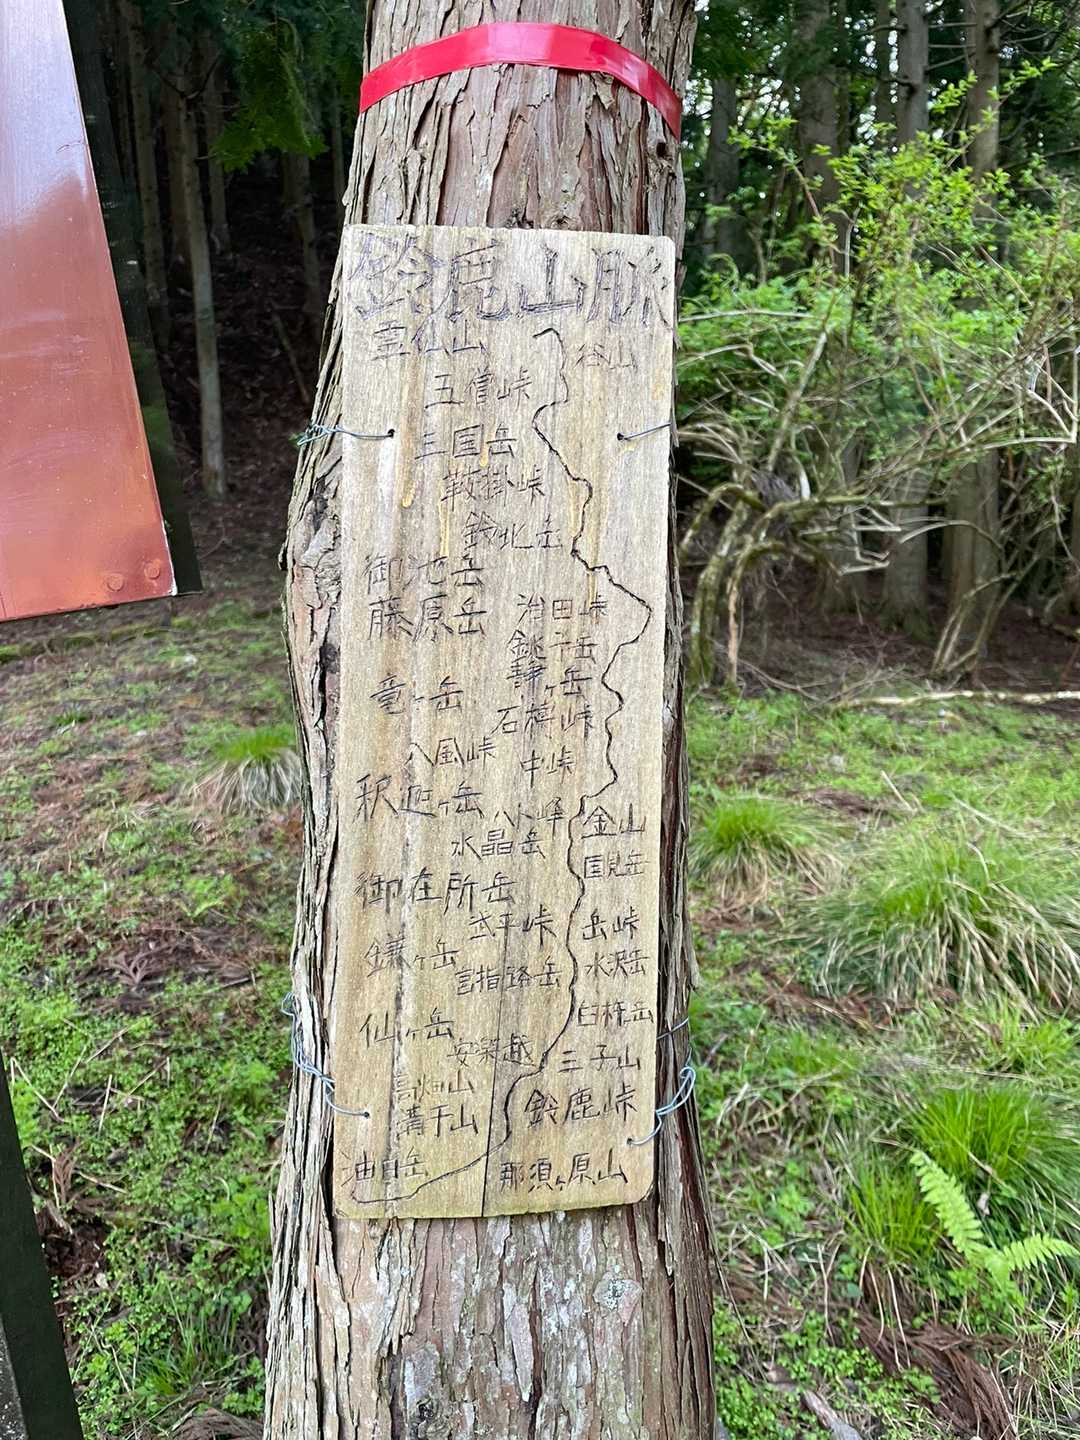 鈴鹿山脈
霊仙山
谷山
五僧峠
三国岳
鞍掛峠
鈴北岳
御池岳
藤原岳
治田峠
銚子岳
静ヶ岳
竜ヶ岳
石榑峠
八風峠
中峠
釈迦ヶ岳
八ト峰
金山
水晶岳
国見岳
御在所岳
武平峠
岳峠
鎌ヶ岳
水沢岳
宮指路岳
臼杵岳
仙ヶ岳
安楽越
三子山
高畑山
溝干山
鈴鹿峠
油日岳
那須ヶ原山